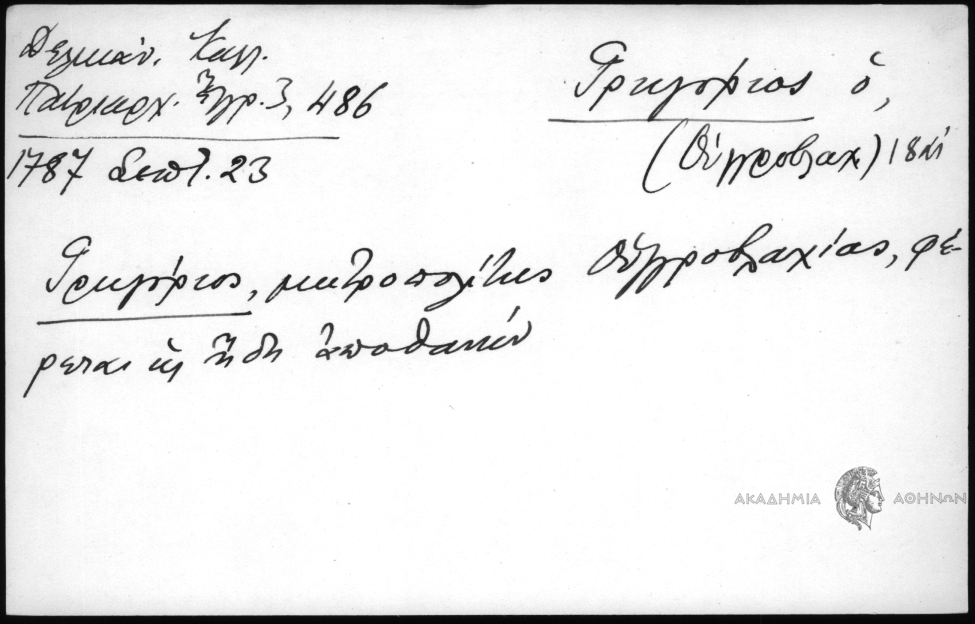 Δελικάν. Καλλ.
Πατριαρχ. Ἔγγρ. 3, 486
1787 Σεπτ. 23
Γρηγόριος ὁ,
(Οὑγγροβλαχ) 18
Γρηγόριος, μητροπολίτης Οὑγγροβλαχίας, φέ-
ρεται ὡς ἤδη ἀποθανών
ΑΚΑΔΗΜΙΑ ΑΘΗΝΩΝ